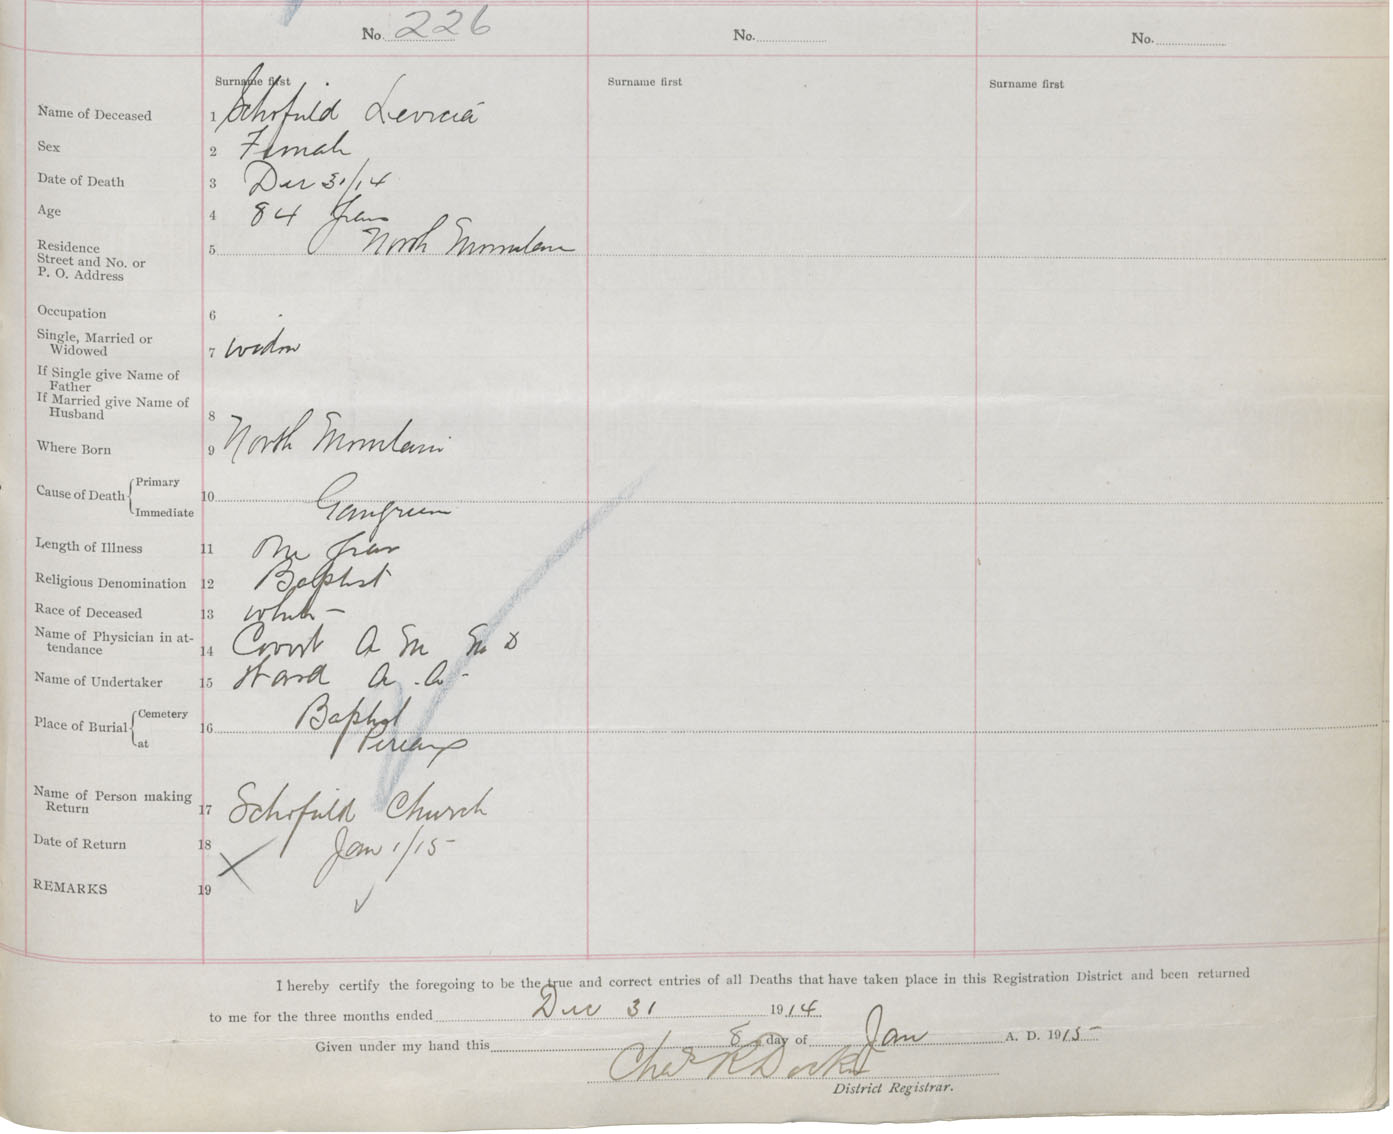 No. 226 No. No.
Surname first Surname first Surname first
Name of Deceased 1 Schofield
Sex 2 Female
Date of Death 3 Dec 31/14
Age 4 84 years
Residence Street and No. or P. O. Address 5 North Mountain
Occupation 6
Single, Married or Widowed 7 widow
If Single give Name of Father
If Married give Name of Husband 8
Where Born 9 North Mountain
Cause of Death { Primary Immediate 10 Gangreen
Length of Illness 11 One year
Religious Denomination 12 Baptist
Race of Deceased 13 white
Name of Physician in at-tendance 14 A M M D
Name of Undertaker 15 Ward A. A.
Place of Burial { Cemetery at 16 Baptist
Pereaux
Name of Person making Return 17 Schofield Church
Date of Return 18 Jan 1/15
REMARKS 19
I hereby certify the foregoing to be the true and correct entries of all Deaths that have taken place in this Registration District and been returned
to me for the three months ended Dec 31 1914
Given under my hand this 8 day of Jan A. D. 1915
Chas R
District Registrar.